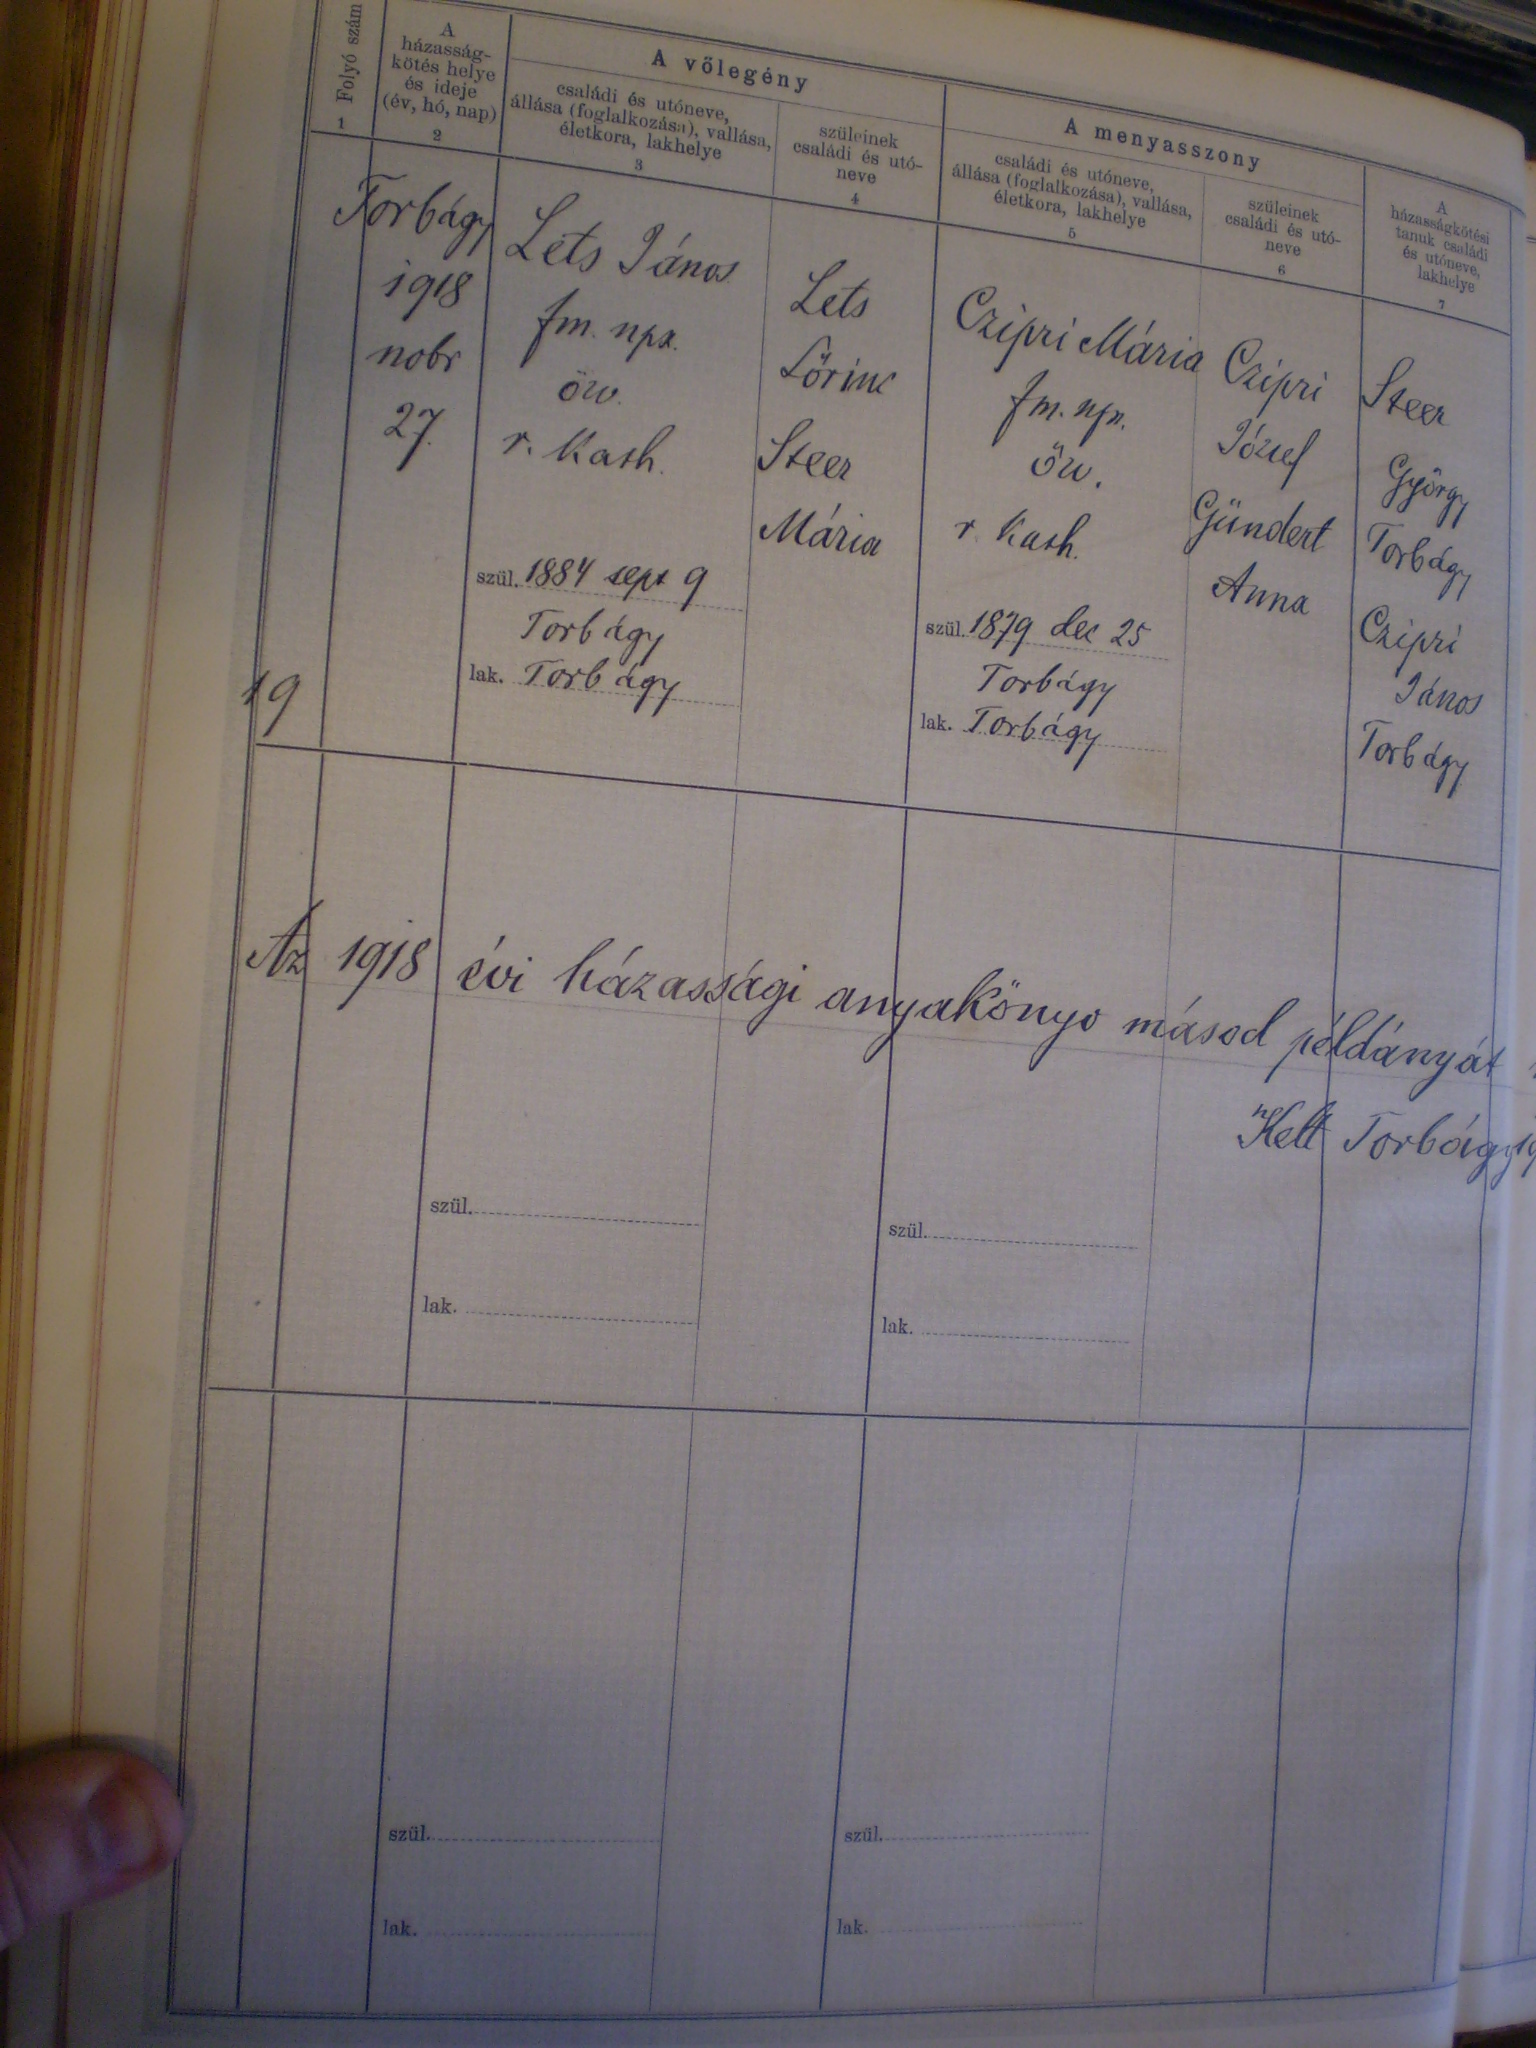 Folyó szám
1
A
házasság-
kötés helye
és ideje
(év, hó, nap)
2
A vőlegény
családi és utóneve,
állása (foglalkozása), vallása,
életkora, lakhelye
3
szüleinek
családi és utó-
neve
4
A menyasszony
családi és utóneve,
állása (foglalkozása), vallása,
életkora, lakhelye
5
szüleinek
családi és utó-
neve
6
A
házasságkötési
tanuk családi
és utóneve,
lakhelye
7
19
Torbágy
1918
nobr
27.
Lets János
fm. nps.
öw.
r. kath.
szül. 1884 sept 9
Torbágy
lak. Torbágy
Lets
Lőrinc
Steer
Mária
Czipri Mária
fm. nps.
öw.
r. kath.
szül. 1879 dec 25
Torbágy
lak. Torbágy
Czipri
József
Gündert
Anna
Steer
György
Torbágy
Czipri
János
Torbágy
Az 1918 évi házassági anyakönyv másod példányát
Kelt Torbágy 19
szül.
lak.
szül.
lak.
szül.
lak.
szül.
lak.